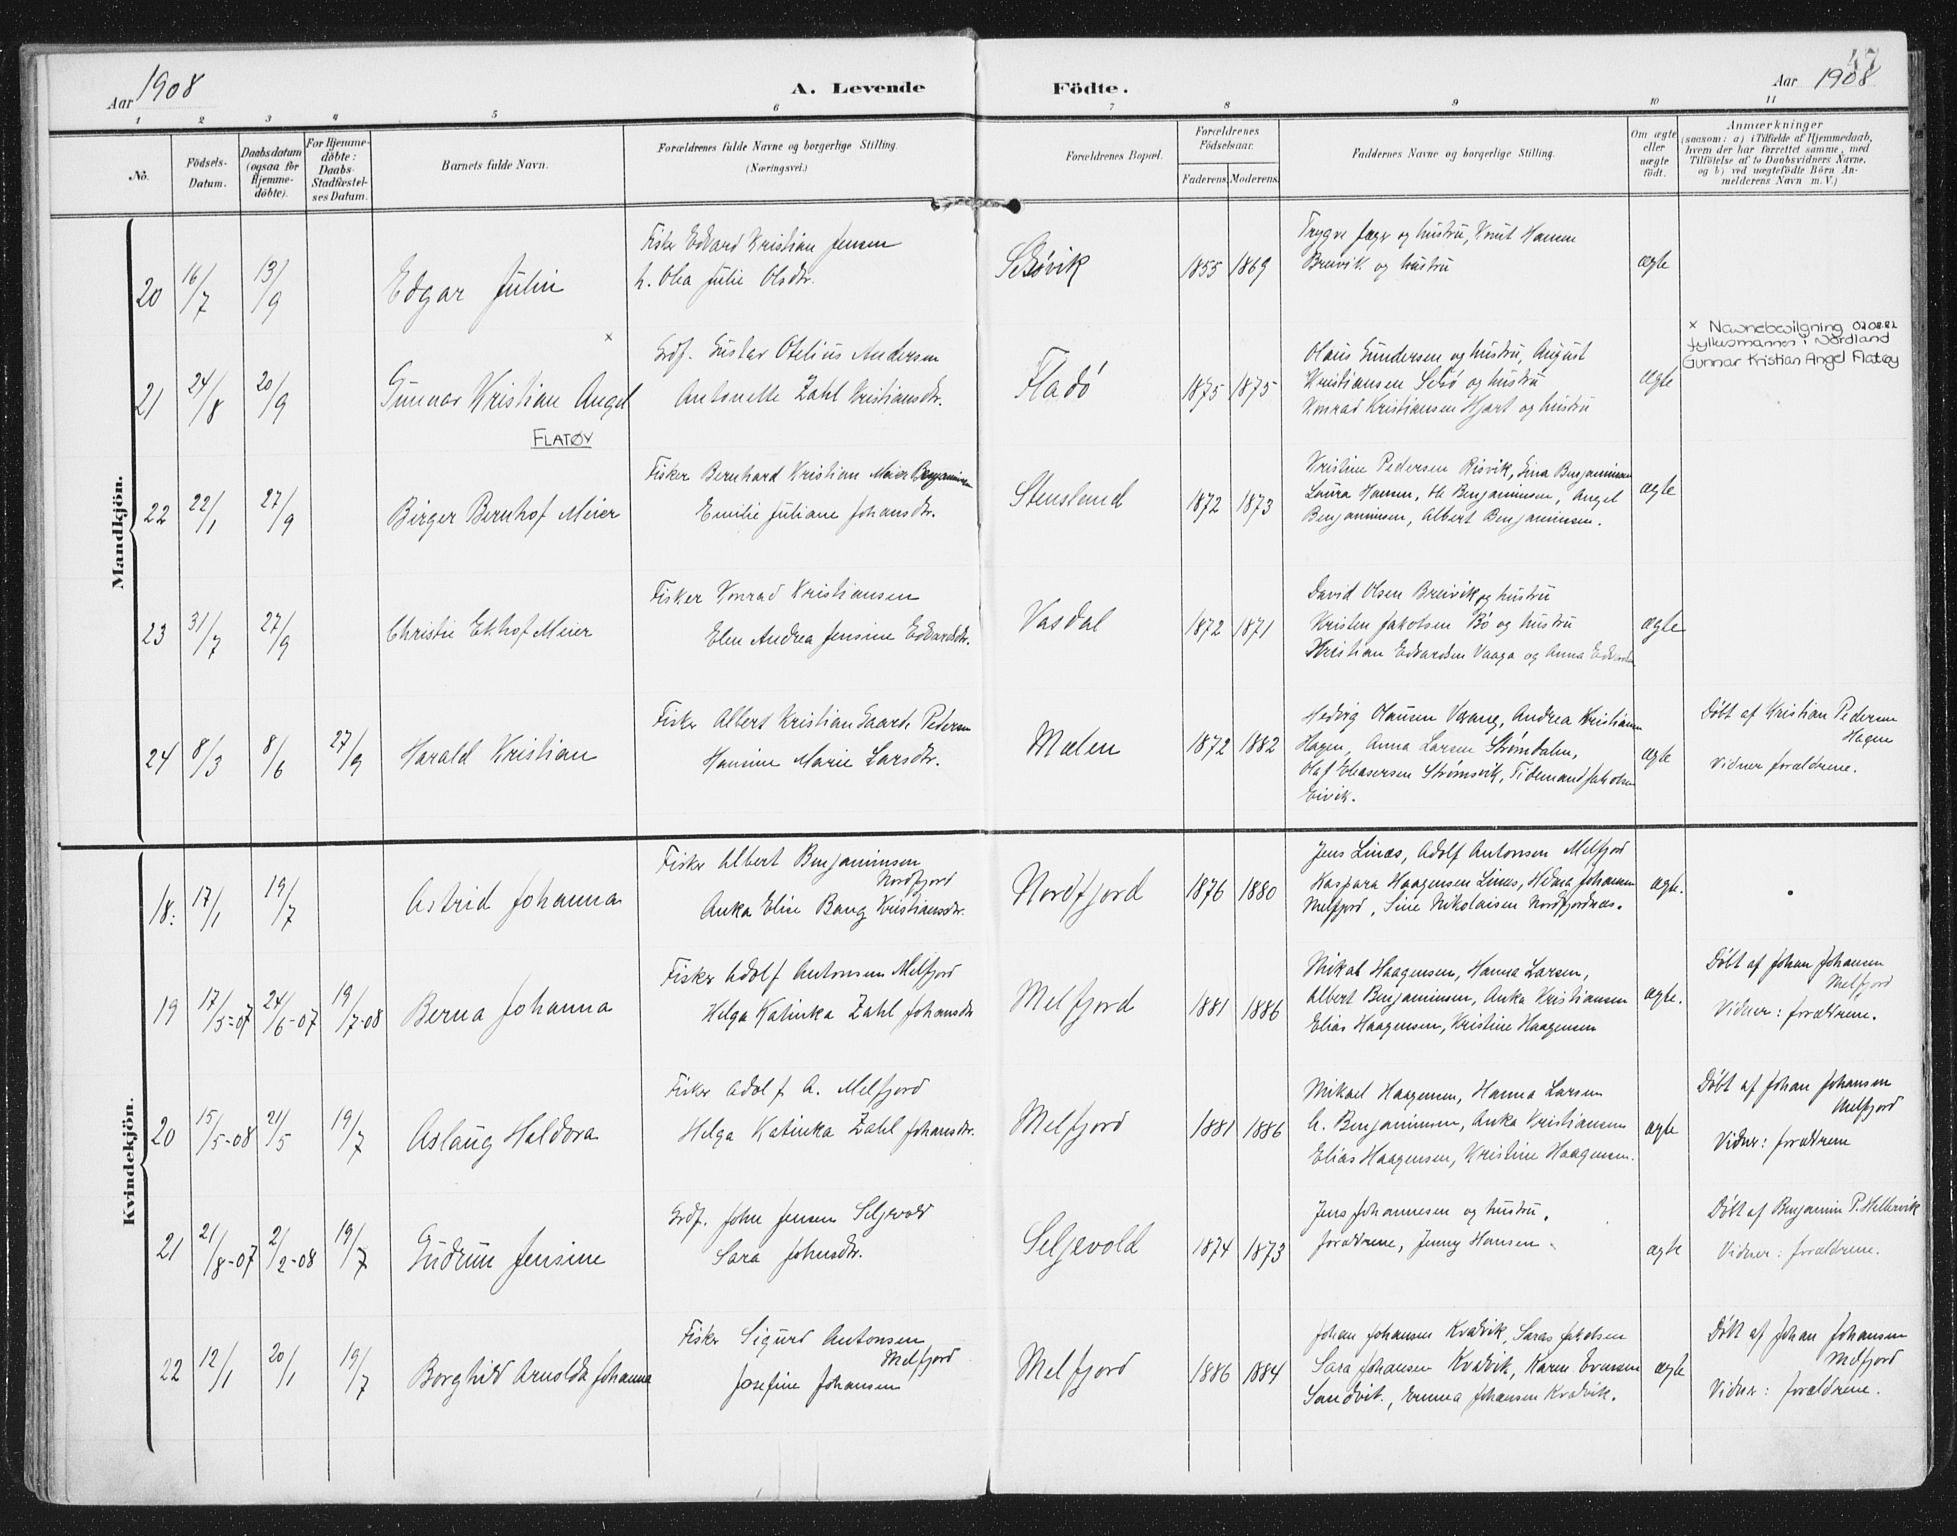 Aar 1908
A. Levende
Födte.
47
Aar 1908
1 2 3 4 5 6 7 8 9 10 11
No.
Födsels-
Datum.
Daabsdatum
(ogsaa för
Hjemme-
döbte).
For Hjemme-
döbte:
Daabs-
Stadfæstel-
ses Datum.
Barnets fulde Navn.
Forældrenes fulde Navne og borgerlige Stilling.
(Næringsvei.)
Forældrenes Bopæl.
Forældrenes
Födselsaar.
Faderens. Moderens.
Faddernes Navne og borgerlige Stilling.
Om ægte
eller
uægte
födt.
Anmærkninger
(saasom: a) i Tilfælde af Hjemmedaab,
hvem der har forrettet samme, med
Tilföielse af to Daabsvidners Navne,
og b) ved uægtefödte Börn An-
melderens Navn m. V.)
Mandkjön.
20 16/7 13/9 Edgar Julin
Fisker Edvard Kristian Jensen
h. Olea Julie Olsdtr.
Selsøvik 1855 1869
Trygve Jæger og hustru, Knut Hansen
Breivik og hustru
ægte
21 24/8 20/9 Gunnar Kristian Angel ×
FLATØY
Grdf. Gustav Otelius Andersen
Antonette Zahl Kristiansdtr.
Fladö 1875 1875
Olaus Gundersen og hustru, August
Kristiansen Selsö og hustru
Konrad Kristiansen Hjart og hustru
ægte
× Navnebevilgning 02.08.82
fylkesmannen i Nordland
Gunnar Kristian Angel Flatøy
22 22/1 27/9 Birger Bernhof Meier
Fisker Bernhard Kristian Meier Benjaminsen
Emilie Juliane Johansdtr.
Stensland 1872 1873
Kristine Pedersen Risvik, Gina Benjaminsen
Laura Hansen, H. Benjaminsen, Angel
Benjaminsen, Albert Benjaminsen.
ægte
23 31/7 27/9 Christie Ekhof Meier
Fisker Konrad Kristiansen
Elen Andrea Jensine Edvardsdtr.
Vasdal 1872 1871
David Olsen Breivik og hustru
Kristen Jakobsen Bö og hustru
Kristian Edvardsen Vaaga og Anna Edvardsen
ægte
24 8/3 8/6 27/9 Harald Kristian
Fisker Albert Kristian Gaarde Pedersen
Hansine Marie Larsdtr.
Mælen 1872 1882
Hedvig Olausen Vaang, Andrea Kristiansen
Hagen, Anna Larsen Strømdalen,
Olaf Eleasersen Strømsvik, Tidemand Jakobsen
Eivik.
ægte
Døbt af Kristian Pedersen
Hagen
Vidner forældrene.
Kvindekjön.
18: 17/1 19/7 Astrid Johanna
Fisker Albert Benjaminsen
Nordfjord
Anka Elise Bang Kristiansdtr.
Nordfjord 1876 1880
Jens Linæs, Adolf Antonsen Melfjord
Kaspara Haagensen Linæs, Helma Johansen
Melfjord, Sine Nikolaisen Nordfjordnæs.
ægte.
19 17/5-07 24/6-07 19/7-08 Berna Johanna
Fisker Adolf Antonsen Melfjord
Helga Katinka Zahl Johansdtr
Melfjord 1881 1886
Mikal Haagensen, Hanna Larsen,
Albert Benjaminsen, Anka Kristiansen
Elias Haagensen, Kristine Haagensen
ægte.
Døbt af Johan Johansen
Melfjord
Vidner: forældrene.
20 15/5-08 21/5 19/7 Aslaug Haldora
Fisker Adolf A. Melfjord
Helga Katinka Zahl Johansdtr.
Melfjord 1881 1886
Mikael Haagensen, Hanna Larsen
A. Benjaminsen, Anka Kristiansen
Elias Haagensen, Kristine Haagensen.
ægte
Døbt af Johan Johansen
Melfjord
Vidner: forældrene
21 21/8-07 2/2-08 19/7 Gudrun Jensine
Grdf. John Jensen Seljevold
Sara Johnsdtr.
Seljevold 1874 1873
Jens Johannesen og hustru.
forældrene, Jenny Hansen.
ægte
Døbt af Benjamin P. Hellervik
Vidner: forældrene.
22 12/1 20/1 19/7 Borghild Arnolda Johanna
Fisker Sigurd Antonsen
Melfjord
Josefine Johansen
Melfjord 1886 1884
Johan Johansen Kvalvik, Saras Jakobsen
Sara Johansen Kvalvik, Karen Evensen
Sandvik, Emma Johansen Kvalvik.
ægte
Døbt af Johan Johansen
Melfjord
Vidner: forældrene.